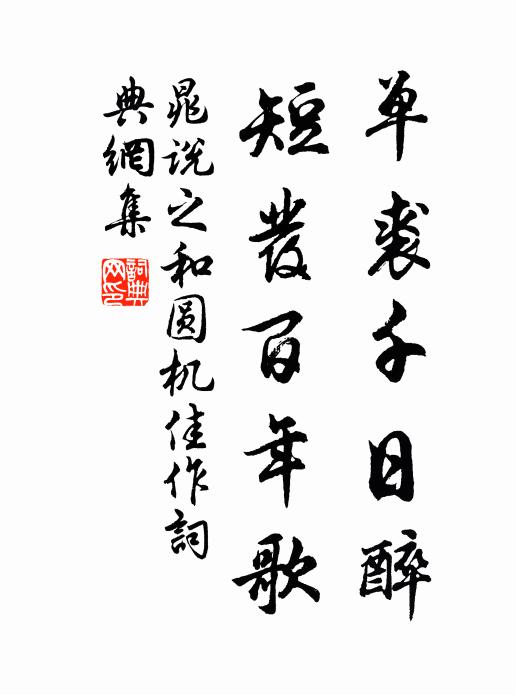 单裘千日醉
短发百年歌
晁说之和圆机佳作词
典網集
詞典網印